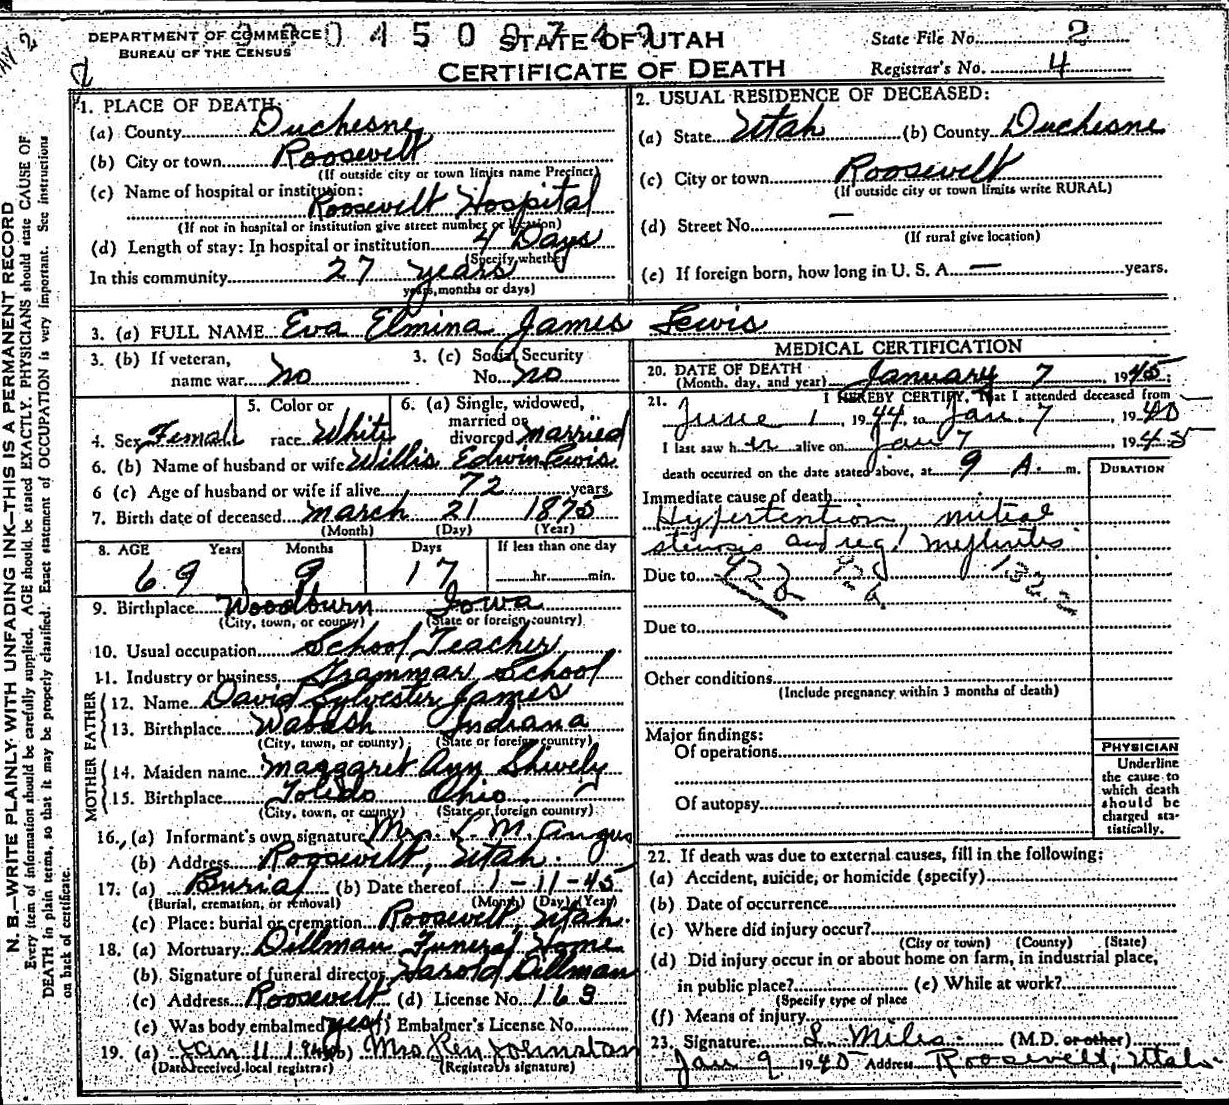 DEPARTMENT OF COMMERCE
BUREAU OF THE CENSUS
STATE OF UTAH
CERTIFICATE OF DEATH
State File No. 2
Registrar's No. 4
N. B.—WRITE PLAINLY, WITH UNFADING INK—THIS IS A PERMANENT RECORD
Every item of information should be carefully supplied. AGE should be stated EXACTLY. PHYSICIANS should state CAUSE OF
DEATH in plain terms, so that it may be properly classified. Exact statement of OCCUPATION is very important. See instructions
on back of certificate.
1. PLACE OF DEATH:
(a) County Duchesne
(b) City or town Roosevelt
(If outside city or town limits name Precinct)
(c) Name of hospital or institution:
Roosevelt Hospital
(If not in hospital or institution give street number or location)
(d) Length of stay: In hospital or institution 4 Days
(Specify whether
In this community 27 years
years, months or days)
2. USUAL RESIDENCE OF DECEASED:
(a) State Utah (b) County Duchesne
(c) City or town Roosevelt
(If outside city or town limits write RURAL)
(d) Street No. —
(If rural give location)
(e) If foreign born, how long in U. S. A. — years.
3. (a) FULL NAME Eva Elmina James Lewis
3. (b) If veteran,
name war no
3. (c) Social Security
No. no
4. Sex Female
5. Color or
race White
6. (a) Single, widowed,
married or
divorced married
6. (b) Name of husband or wife Willis Edwin Lewis
6 (c) Age of husband or wife if alive 72 years
7. Birth date of deceased March 21 1875
(Month) (Day) (Year)
8. AGE Years Months Days If less than one day
69 9 17 hr. min.
9. Birthplace Woodburn Iowa
(City, town, or county) (State or foreign country)
10. Usual occupation School Teacher
11. Industry or business Grammar School
FATHER
12. Name David Sylvester James
13. Birthplace Wabash Indiana
(City, town, or county) (State or foreign country)
MOTHER
14. Maiden name Maggaret Ann Shively
15. Birthplace Toledo Ohio
(City, town, or county) (State or foreign country)
16. (a) Informant's own signature Mrs. L. M. Angus
(b) Address Roosevelt, Utah.
17. (a) Burial (b) Date thereof 1-11-45
(Burial, cremation, or removal) (Month) (Day) (Year)
(c) Place: burial or cremation Roosevelt, Utah.
18. (a) Mortuary Dillman Funeral Home
(b) Signature of funeral director Harold Dillman
(c) Address Roosevelt (d) License No. 169
(e) Was body embalmed yes (f) Embalmer's License No.
19. (a) Jan 11 1945 (b) Mrs Ren Johnston
(Date received local registrar) (Registrar's signature)
MEDICAL CERTIFICATION
20. DATE OF DEATH
(Month, day, and year) January 7 1945;
21. I HEREBY CERTIFY, That I attended deceased from
June 1, 1944, to Jan. 7, 1945
I last saw her alive on Jan 7, 1945
death occurred on the date stated above, at 9 A. m.
DURATION
Immediate cause of death
Hypertention, mitral
stenosis and
Due to
Due to
Other conditions
(Include pregnancy within 3 months of death)
Major findings:
Of operations
Of autopsy
PHYSICIAN
Underline
the cause to
which death
should be
charged sta-
tistically.
22. If death was due to external causes, fill in the following:
(a) Accident, suicide, or homicide (specify)
(b) Date of occurrence
(c) Where did injury occur?
(City or town) (County) (State)
(d) Did injury occur in or about home on farm, in industrial place,
in public place? (e) While at work?
(Specify type of place
(f) Means of injury
23. Signature L. Miles. (M.D. or other)
Jan 9 1945 Address Roosevelt, Utah